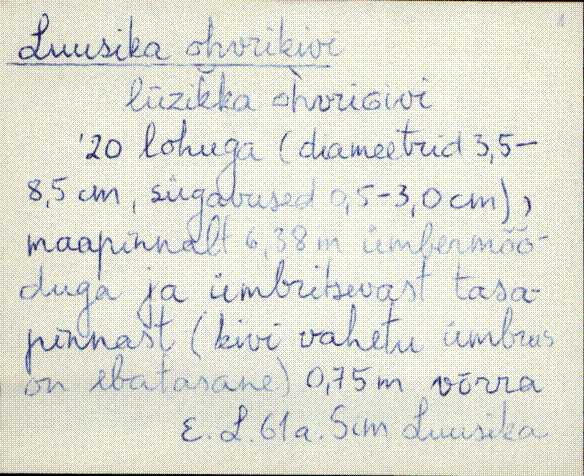 Luusika ohvrikivi
lūzikka ohvriǝivi
'20 lohuga (diameetrid 3,5-
8,5 cm, sügavused 0,5-3,0 cm),
maapinnalt 6,38 m ümbermõõ-
duga ja ümbritsevast tasa-
pinnast (kivi vahetu ümbrus
on ebatasane) 0,75 m võrra
E. L. 61a. Sim Luusika